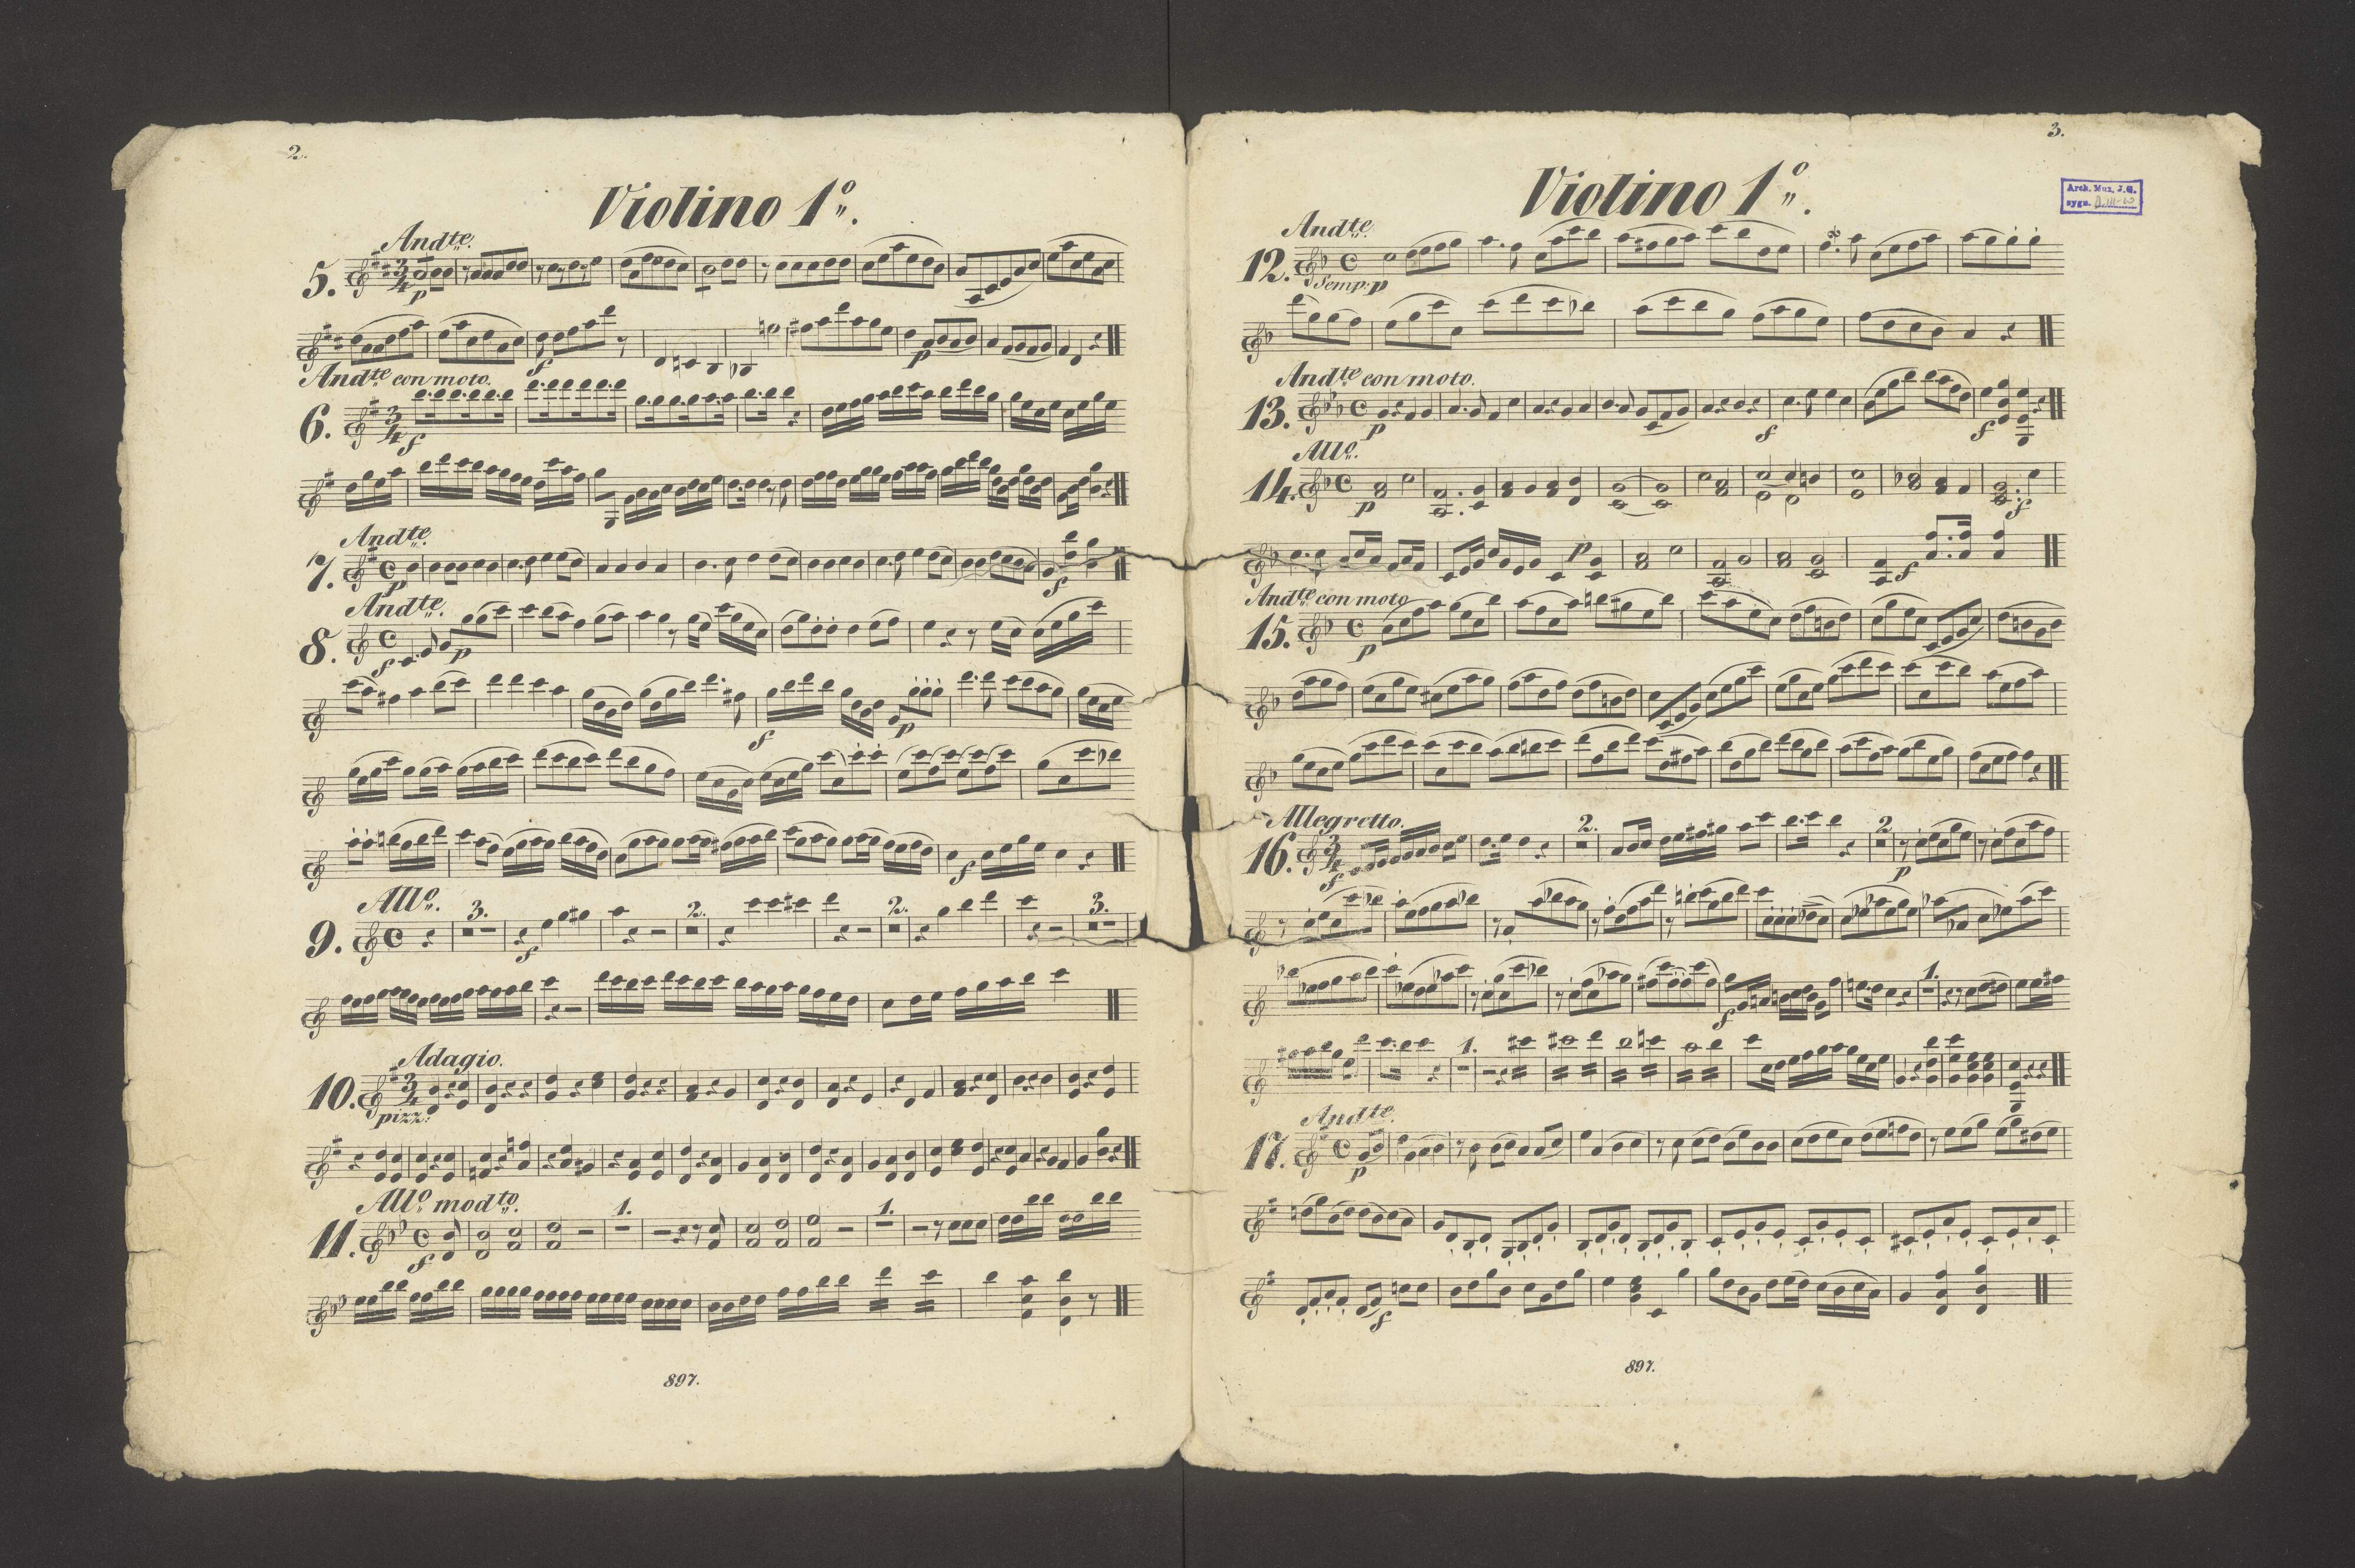 2.
Violino 1º.
Andte.
5.
3/4
p
f
p
Andte con moto.
6.
3/4
f
Andte.
7.
p
f
Andte.
8.
f
p
f
p
f
Allo.
9.
3.
f
2.
2.
3.
Adagio.
10.
3/4
pizz:
Allo modto.
11.
f
1.
1.
897.
3.
Violino 1º.
Arch. Muz. J.G.
sygn.
Andte.
12.
Semp: p
Andte con moto.
13.
p
f
f
Allo.
14.
p
f
p
f
Andte con moto
15.
p
Allegretto.
16.
3/4
f
2.
2
p
f
1.
1.
Andte.
17.
p
f
897.